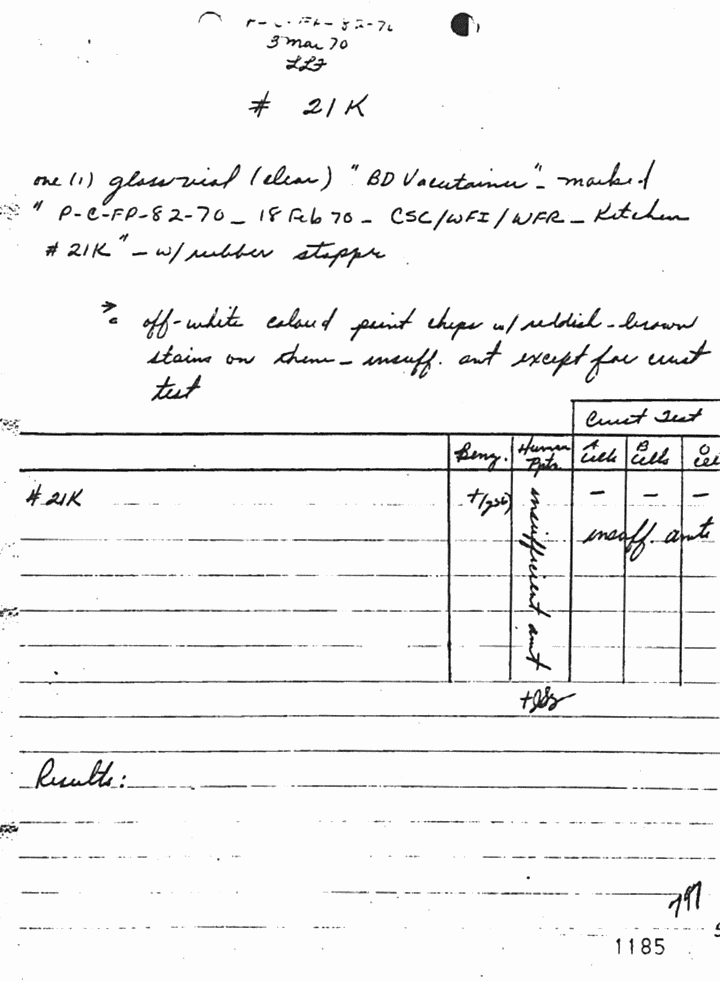 P-C-FP-82-70
3 Mar 70
# 21K
one (1) glass vial (clear) "BD Vacutainer" - marked
" P-C-FP-82-70 - 18 Feb 70 - CSC/WFI/WFR - Kitchen
# 21K" - w/ rubber stopper
off-white colored paint chips w/ reddish-brown
stains on them - insuff. amt except for crust
test
Crust Test
Benz. Human Pptn A Cells B Cells O Cell
# 21K + - - -
insufficient amt
insuff. amts
Results:
797
1185